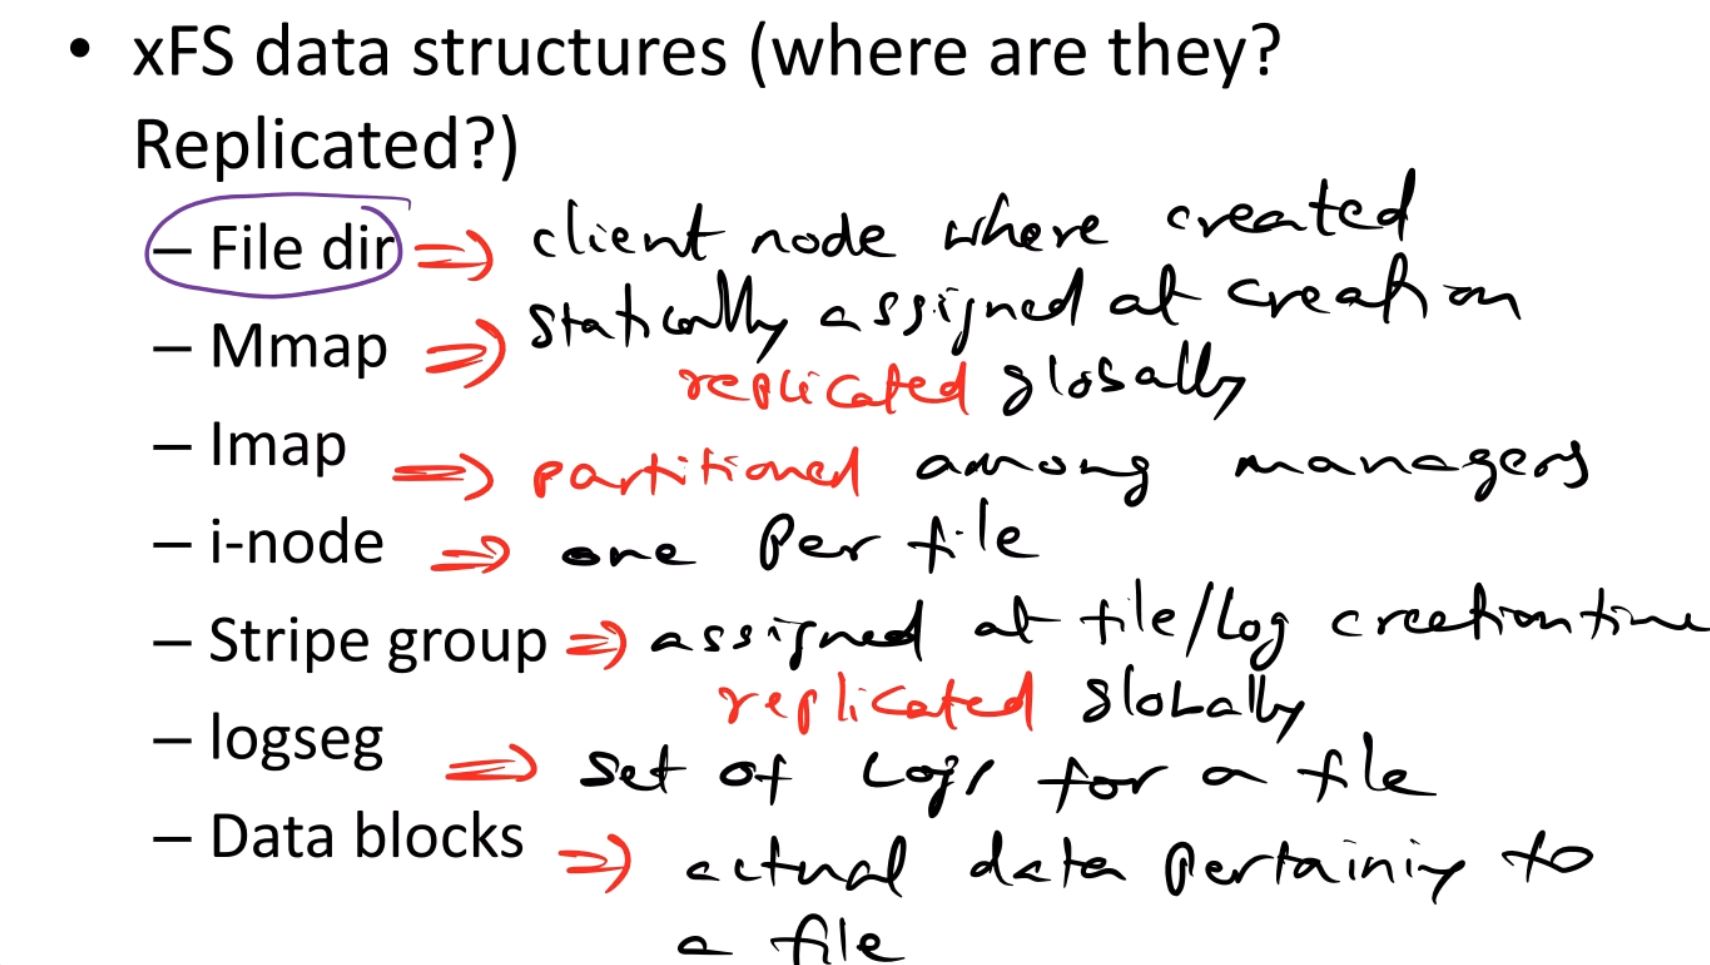 • xFS data structures (where are they?
Replicated?)
– File dir ⇒ client node where created
– Mmap ⇒ statically assigned at creation
replicated globally
– Imap ⇒ partitioned among managers
– i-node ⇒ one per file
– Stripe group ⇒ assigned at file/log creation time
replicated globally
– logseg ⇒ set of logs for a file
– Data blocks ⇒ actual data pertaining to
a file